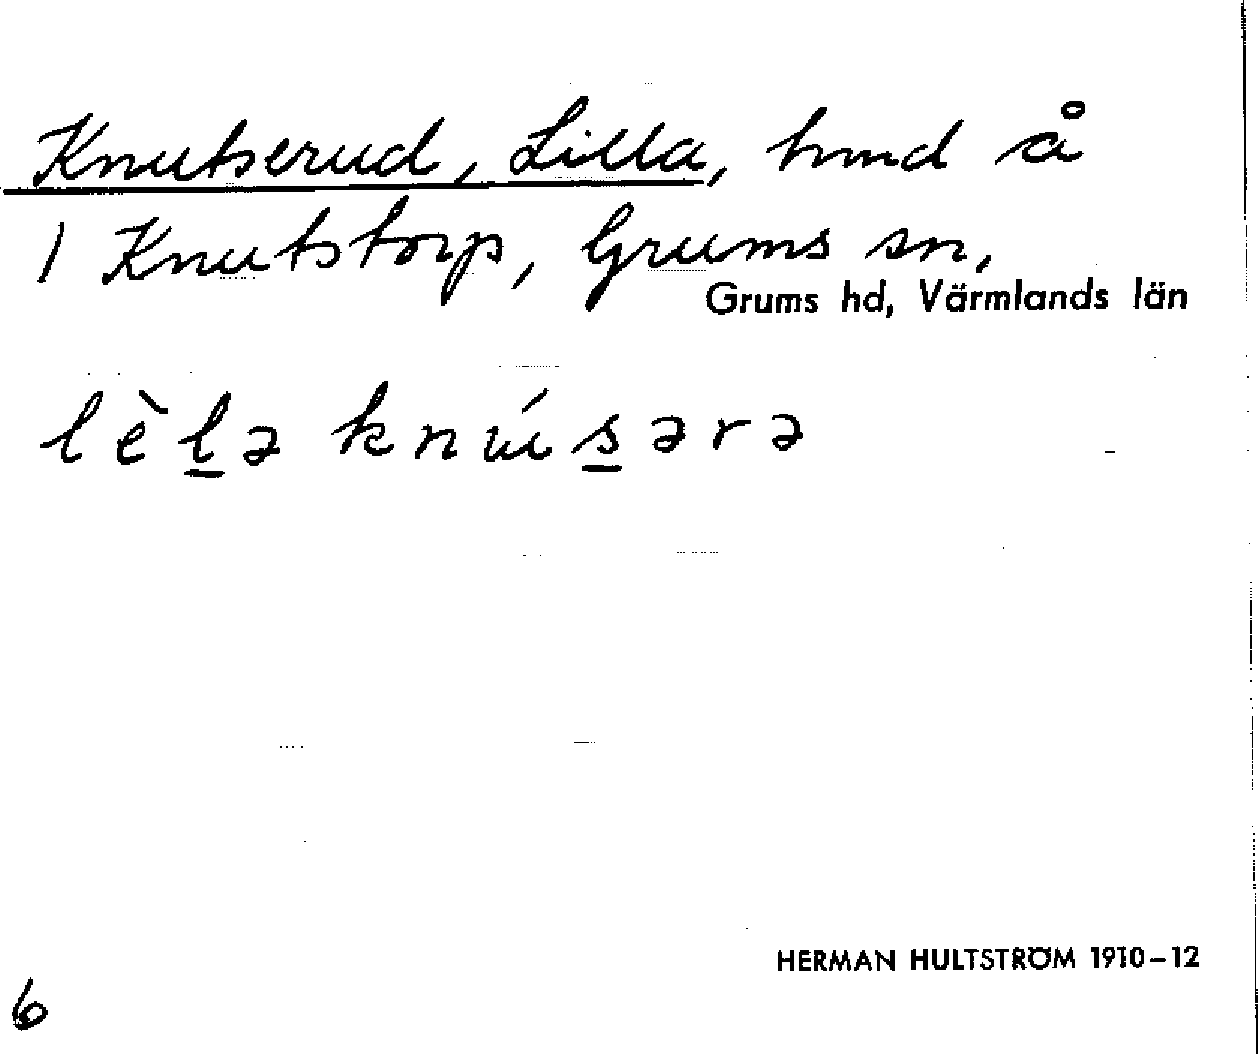 Knutserud, Lilla, hmd å
1 Knutstorp, Grums sn,
Grums hd, Värmlands län
lèl̲ə knús̲ərə
HERMAN HULTSTRÖM 1910–12
6